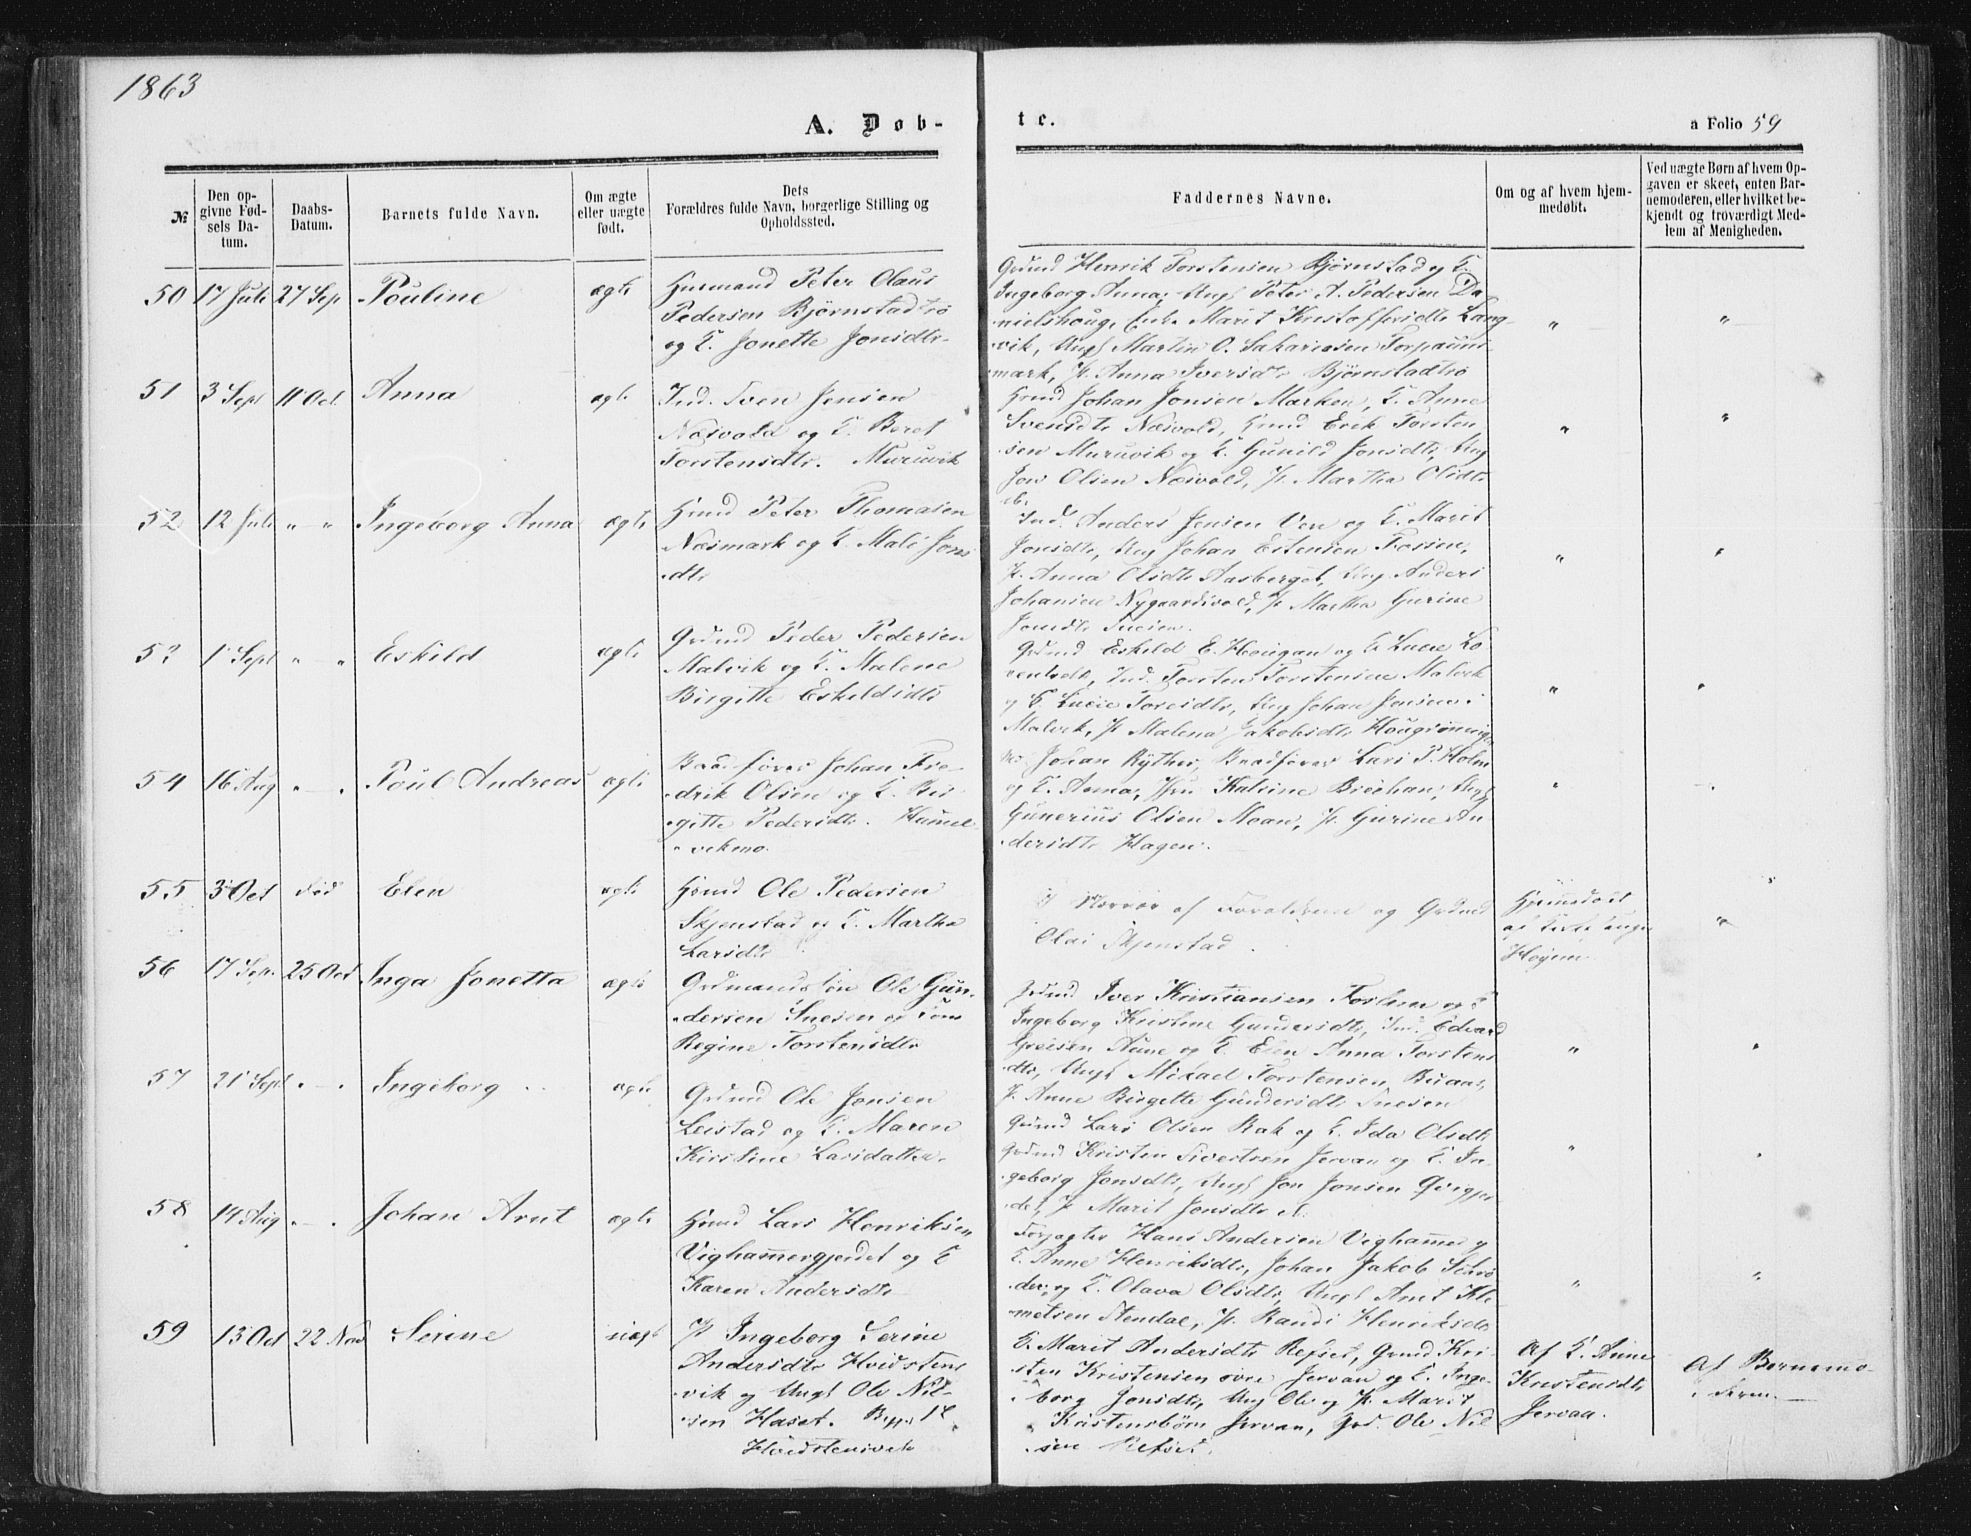 1863
A. Døb-
te.
a Folio 59
№
Den op-
givne Fød-
sels Da-
tum.
Daabs-
Datum.
Barnets fulde Navn.
Om ægte
eller uægte
født.
Dets
Forældres fulde Navn, borgerlige Stilling og
Opholdssted.
Faddernes Navne.
Om og af hvem hjem-
medøbt.
Ved uægte Børn af hvem Op-
gaven er skeet, enten Bar-
nemoderen, eller hvilket be-
kjendt og troværdigt Med-
lem af Menigheden.
50 17 Juli 27 Sep Pouline ægte
Husmand Peter Olaus
Pedersen Bjørnstadtrø
og K. Jonette Jonsdtr
Grdmd Henrik Torstensen Bjørnstad og K.
Ingeborg Anna, Ungk Peter A. Pedersen Da-
nielshoug, Enke Marit Kristoffersdtr Lang-
vik, Ungk Martin O. Sakariasen Torp
mark, P. Anna Iversdtr Bjørnstadtrø
" "
51 3 Sept 11 Oct. Anna ægte
Ind. Sven Jensen
Næsvold og K. Beret
Torstensdtr. Muruvik
Grmd Johan Jonsen Marken, K. Anne
Svendtr Næsvold, Grmd Erik Torsten
sen Muruvik og K. Gunild Jonsdtr, Ung
Jon Olsen Næsvold, P. Martha Olsdtr
ib.
" "
52 12 Juli " " Ingeborg Anna ægte
Hmd Peter Thomasen
Næsmark og K. Mali Jons
dtr
Ind. Anders Jensen Ven og K. Marit
Jonsdtr, Ung Johan Estensen Fossen,
P. Anna Olsdtr Aasberget, Ung Anders
Johansen Nygaardsvold, P. Martha Gurine
Jonsdtr
" "
53 1 Sept " " Eskild ægte
Grdmd Peder Pedersen
Malvik og K. Malene
Birgitte Eskildsdtr
Grdmd Eskild E. Hougan og K Lucie Lo
rentsdtr, Ind. Torsten Torstensen Malvik
og K. Lucie Toresdtr, Ung Johan Jonsen
Malvik, P. Malena Jakobsdtr
" "
54 16 Aug " " Poul Andreas ægte
Baadfører Johan Fre-
drik Olsen og K. Bir
gitte Pedersdtr. Humel
vikmo.
Johan Rÿther, Baadfører Lars P. Holm
og K. Anna, Katrine, Ungk
Gunerius Olsen Moan, P. Gurine An
dersdtr Hagen.
" "
55 3 Oct død Elen ægte
Hsmd Ole Pedersen
Skjenstad og K. Martha
Larsdtr
I Nærvær af Forældrene og Grdmd
Olai Skjenstad.
Hjemmedøbt
af
Højem.
"
56 17 Sept. 25 Oct Inga Jonetta ægte
Grdmandssøn Ole Gun-
dersen Snesen og
Regine Torstensdtr
Grdmd Iver Kristiansen Foslem og K
Ingeborg Kristine Gundersdtr, Ind. Edvard
Aune og K. Elen Anna Torstens
dtr, Ungk Mikael Torstensen Buaas,
P. Anne Birgitte Gundersdtr Snesen
" "
57 21 Sept " " Ingeborg ægte
Grdmd Ole Jonsen
Leistad og K. Maren
Kirstine Larsdatter.
Grdmd Lars Olsen Rak og K. Ida Olsdtr
Grdmd Kristen Sivertsen Jervan og K. In
geborg Jonsdtr, Ungk Jon Jonsen
det, P. Marit Jonsdtr
" "
58 14 Aug " " Johan Arnt ægte
Hmd Lars Henriksen
Vighammergjerdet og K
Karen Andersdtr
Forpagter Hans Andersen Vighammer og
K. Anne Henriksdtr, Johan Jakob Schrø
der og K. Olava Olsdtr, Ungk Arnt Kle
metsen Stendal, P. Randi Henriksdtr
" "
59 13 Oct 22 Nov Serine uægt
P Ingeborg Serine
Andersdtr Hvidstens
vik og Ungk Ole Nil-
sen Haset.
Hvidstensvik
K. Marit Andersdtr Refset, Grmd Kri-
sten Kristensen øvre Jervan og K. Inge
borg Jonsdtr, Ung Ole og P. Marit
Kristensbørn Jervan, Ole Nil
sen Refset.
Af K. Anne
Kristensdtr
Jervan.
Af Barnemo
deren.